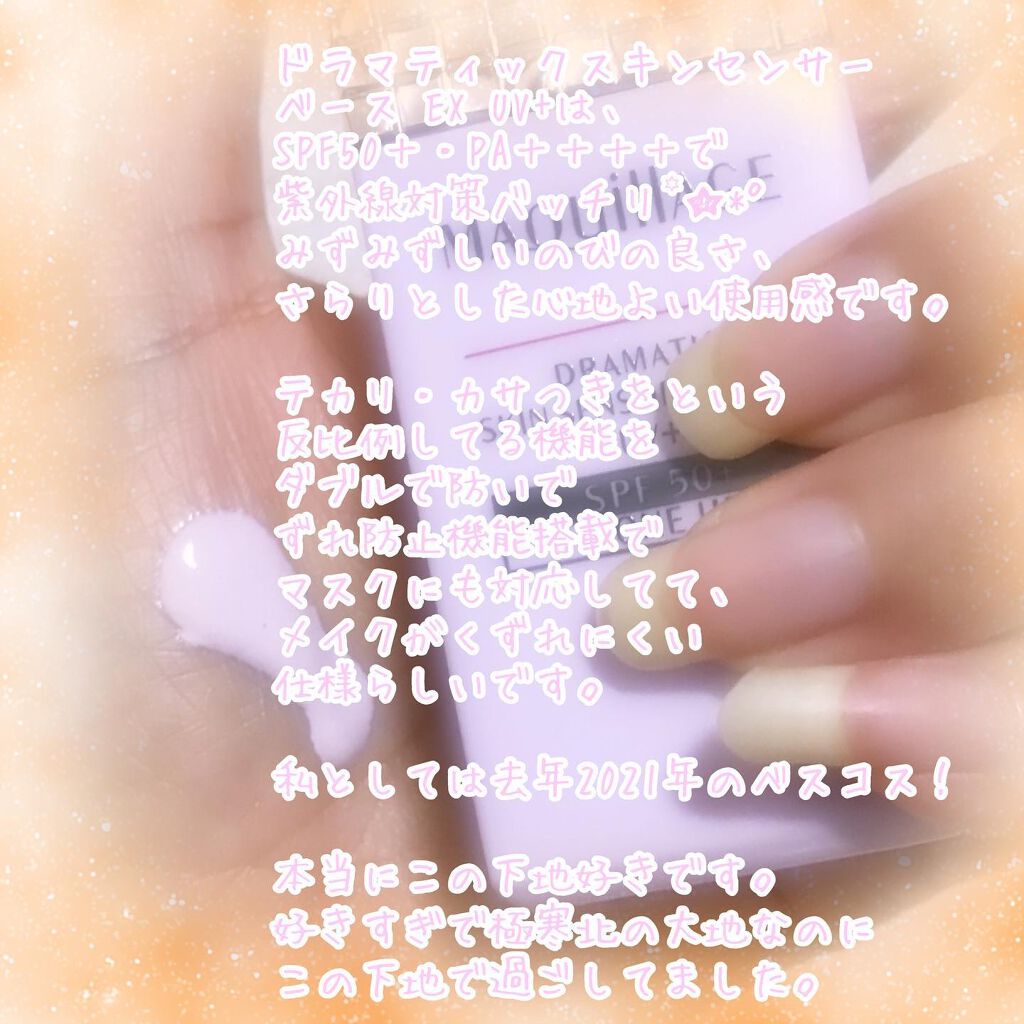 ドラマティックスキンセンサー
ベース EX UV+は、
SPF50+・PA++++で
紫外線対策バッチリ
みずみずしいのびの良さ、
さらりとした心地よい使用感です。
テカリ・カサつきをという
反比例してる機能を
ダブルで防いで
ずれ防止機能搭載で
マスクにも対応してて、
メイクがくずれにくい
仕様らしいです。
私としては去年2021年のベスコス!
本当にこの下地好きです。
好きすぎで極寒北の大地なのに
この下地で過ごしてました。
MAQuillAGE
DRAMATIC
SPF 50+